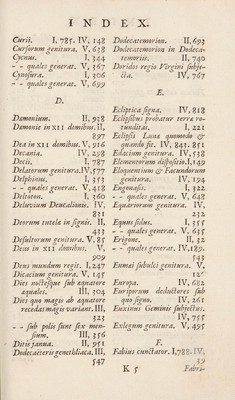 INDEX.
Curii. I, 785. IV, 148
Cursorum genitura. V, 638
Cycnus. I, 344
- - quales generat. V, 699
Cynosura. I, 306
- - quales generat. V, 699
D.
Damonium. II, 938
Damonie in XII domibus. II,
897
Dea in XII domibus. V, 916
Decania. IV, 298
Decii. I, 787
Delatorum genitura. IV, 577
Delphinus. I, 353
- - quales generat. V, 418
Deltoton. I, 360
Delucium Deucalionis. IV,
831
Deorum tutela in signis. II,
433
Desultorum genitura. V, 85
Deus in XII domibus. V,
909
Deus mundum regit. I, 247
Dicacium genitura. V, 145
Dies noctesque sub æquatore
æquales. III, 304
Dies quo magis ab æquatore
recedas magis variant. III,
323
- - sub polis sunt sex men-
sium. III, 356
Ditis janua. II, 951
Dodecaëteris genethliaca. III,
547
Dodecatemorion. II, 693
Dodecatemorion in Dodeca-
temoriis. II, 740
Doridos regio Virgini subje-
cta. IV, 767
E.
Ecliptica signa. IV, 818
Eclipsibus probatur terræ ro-
tunditas. I, 221
Eclipsis Lunæ quomodo &
quando fit. IV, 842. 851
Edacium genitura. IV, 538
Elementorum dispositio. I, 149
Eloquentium & Facundorum
genitura. IV, 194
Engonasis. I, 322
- - quales generat. V, 648
Equariorum genitura. IV,
232
Equus sidus. I, 355
- - quales generat. V, 635
Erigone. II, 32
- - quales generat. IV, 189.
543
Eumai subulci genitura. V,
Europa. IV, 682
Euriporum deductores sub
quo signo. IV, 261
Euxinus Geminis subjectus.
IV, 755
Exlegum genitura. V, 495
F.
Fabius cunctator. I, 788. IV,
39
K 5 Fabri-